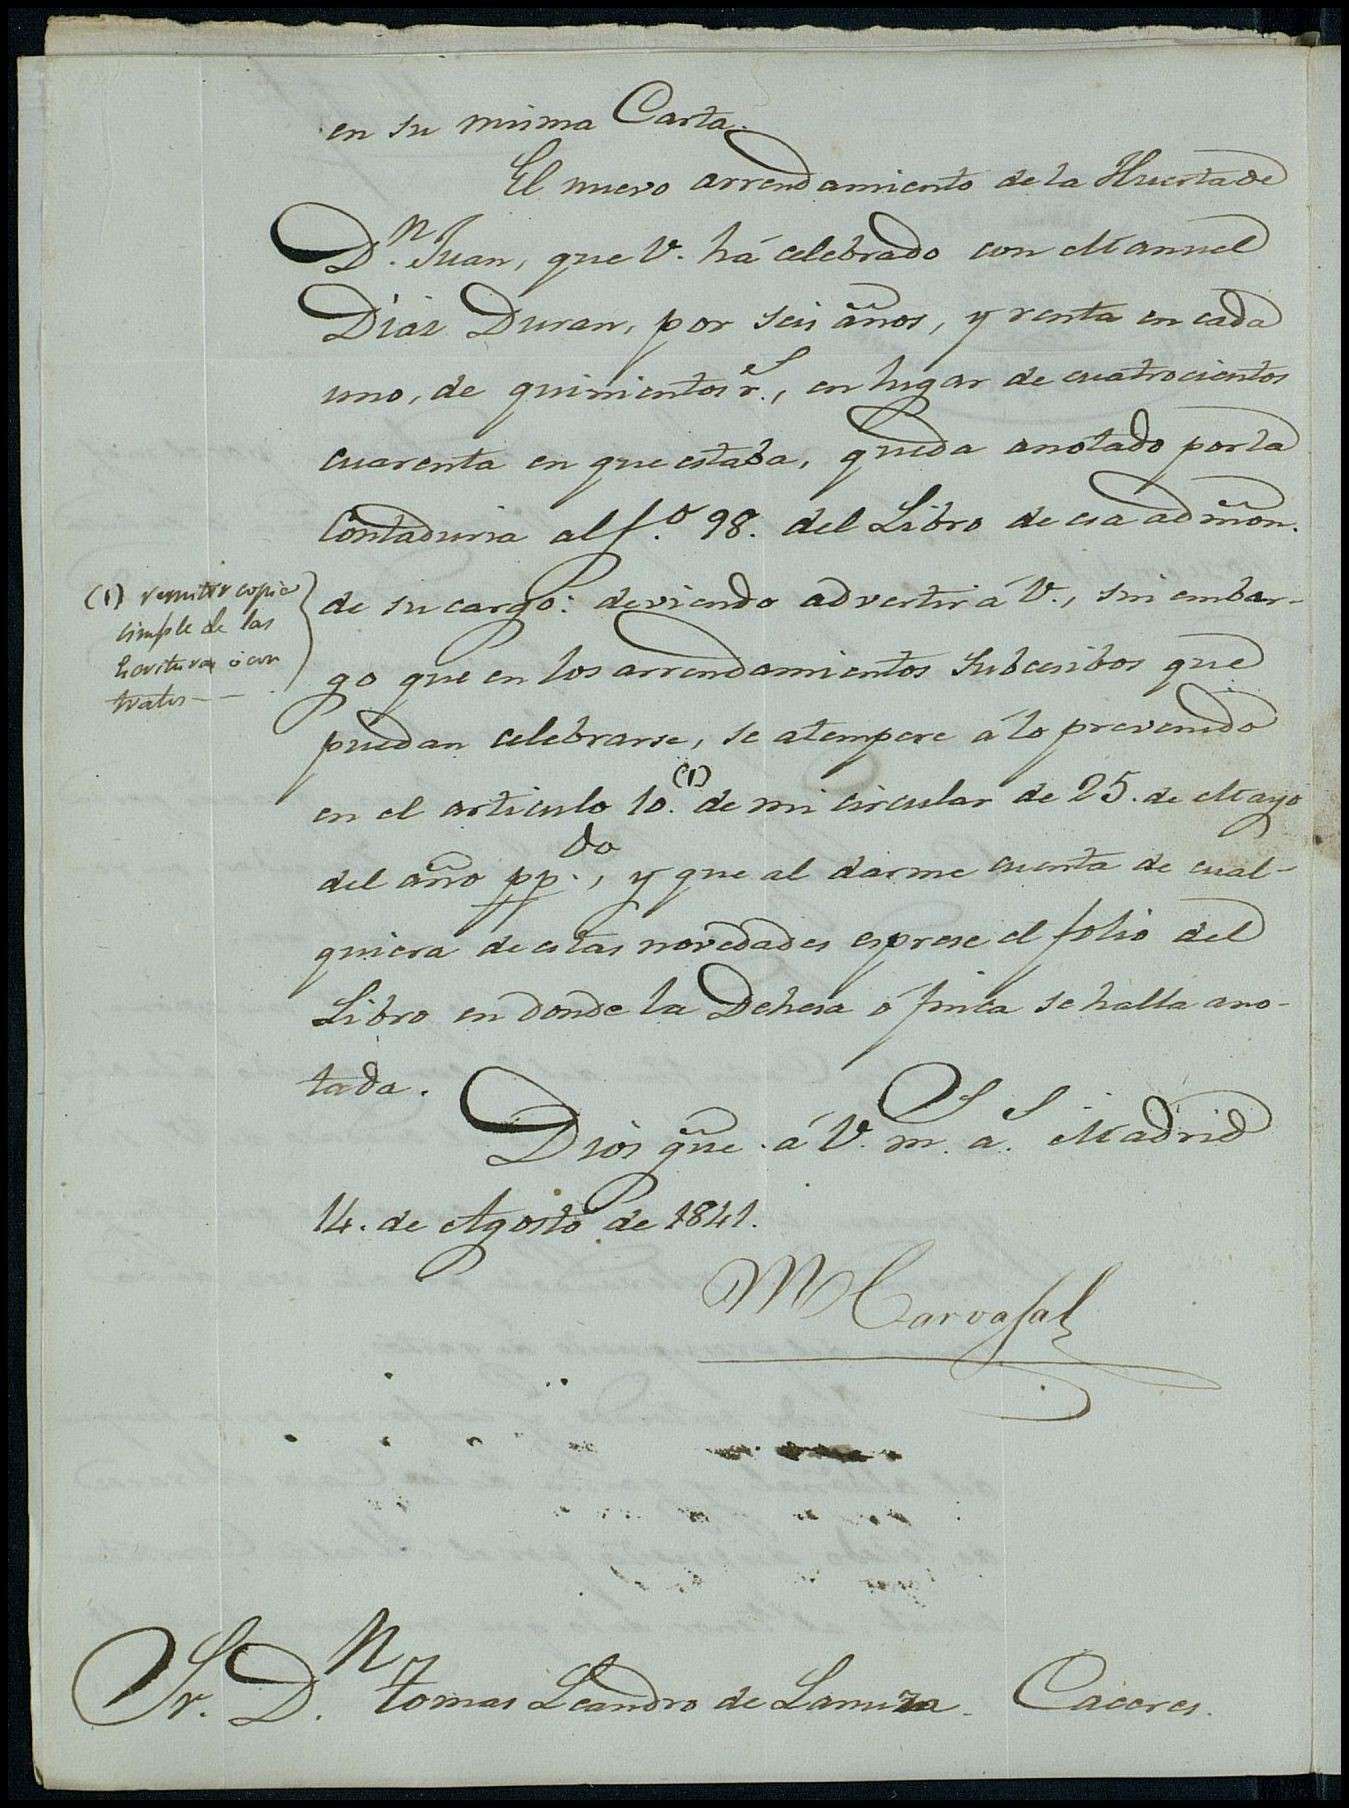 en su misma Carta.
El nuevo arrendamiento de la Huerta de
D.n Juan, que V. há celebrado con Manuel
Diaz Duran, por seis años, y renta en cada
uno, de quinientos r.s, en lugar de cuatrocientos
cuarenta en que estaba, queda anotado por la
Contaduria al f.o 98. del Libro de esa admõn.
de su cargo: deviendo advertir á V., sin embar-
go que en los arrendamientos subcesibos que
puedan celebrarse, se atempere á lo prevenido
en el articulo 10.(1) de mi circular de 25. de Mayo
del año pp.do, y que al darme cuenta de cual-
quiera de estas novedades esprese el folio del
Libro en donde la Dehesa ó finca se halla ano-
tada.
(1) remitir copia
simple de las
Escrituras ó con
tratos - -
Dios gũe. á V. m.s a.s Madrid
14. de Agosto de 1841.
M Carvajal
Sr. D.n Tomas Leandro de Lamiza. Caceres.